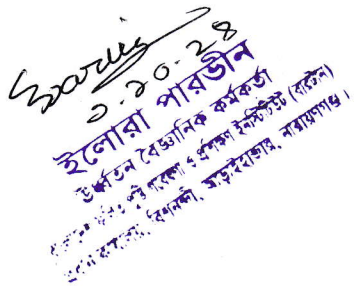 ৩.১০.২৪
ইলোরা পারভীন
উর্ধ্বতন বৈজ্ঞানিক কর্মকর্তা
পুষ্টি গবেষণা ও প্রশিক্ষণ ইনস্টিটিউট (বারটান)
প্রধান কার্যালয়, বিশনন্দী, আড়াইহাজার, নারায়ণগঞ্জ।